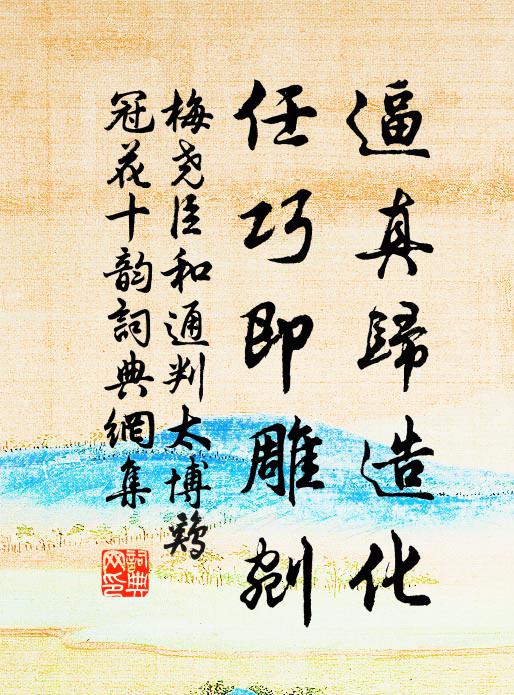 逼真歸造化
任巧即雕剜
梅尧臣和通判太博鸡
冠花十韵詞典網集